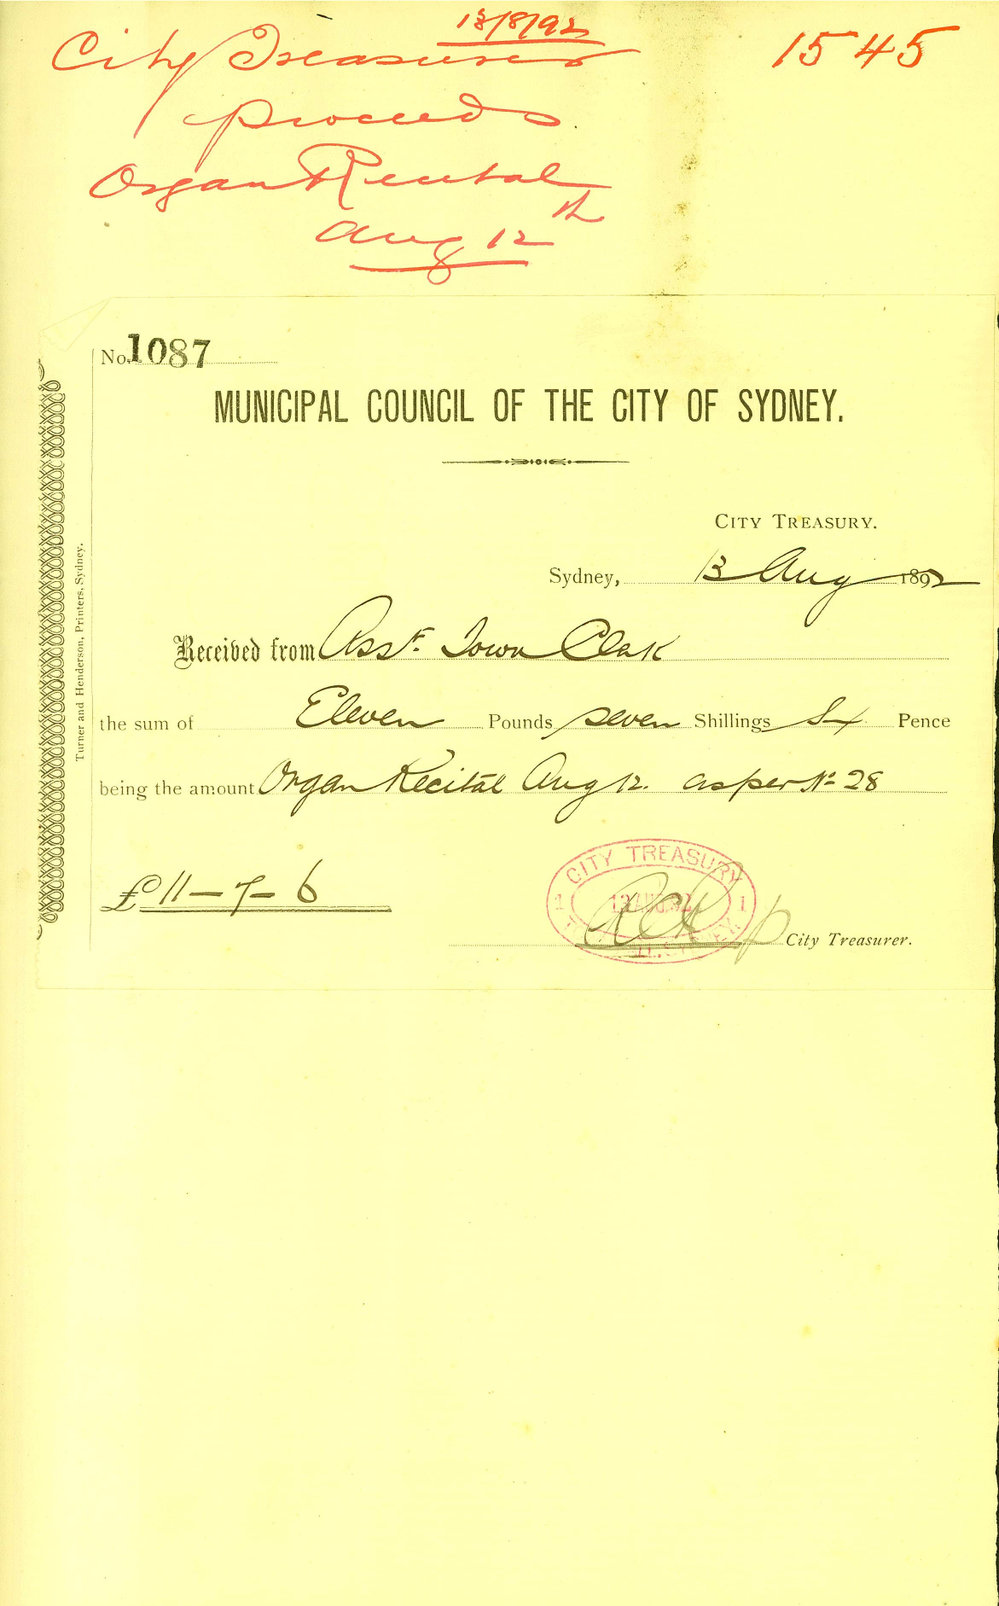 13/8/92
City Treasurer
1545
proceeds
Organ Recital
Aug 12th
No. 1087
MUNICIPAL COUNCIL OF THE CITY OF SYDNEY.
CITY TREASURY.
Sydney, 13 Aug 1892
Received from Asst. Town Clerk
the sum of Eleven Pounds seven Shillings Six Pence
being the amount Organ Recital Aug 12. as per No 28
£11-7-6
CITY TREASURY
1 13 AUG. 92 1
City Treasurer.
Turner and Henderson, Printers, Sydney.